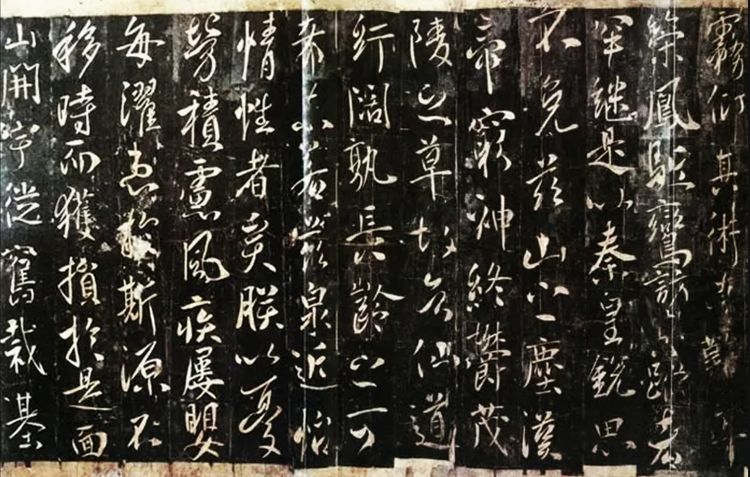 霧衍其術
鳳駈鸞訪之未
罕継是以秦皇銳思
不免茲山之塵漢
帝窮神終鬱茂
陵之草故知仙道
紆闊孰長齡之可
希未若巖泉近怡
情性者矣朕以憂
勞積慮風疾屢嬰
每濯患於斯源不
移時而獲損於是面
山開宇從舊裁基